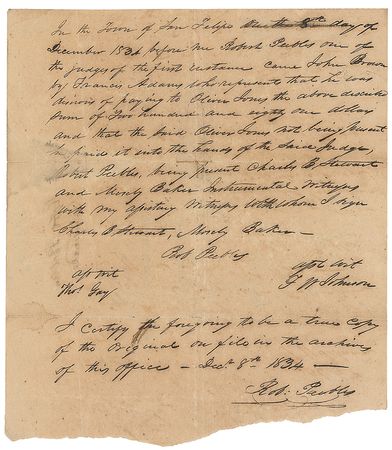 In the Town of San Felipe on the 8th day of
December 1834 before me Robert Peebles one of
the judges of the first instance came John Brown
by Francis Adams who represents that he was
desirous of paying to Oliver Jones the above described
sum of Two hundred and eighty one dollars
and that the said Oliver Jones not being present
he paid it into the hands of the said judge,
Robert Peebles, being present Charles B. Stewart
and Mosely Baker Instrumental Witnesses
with my assisting Witnesses with whom I sign
Charles B Stewart, Mosely Baker —
Rob Peebles
asst wit
Thos. Gay
asst wit
J W Johnson
I certify the foregoing to be a true copy
of the original on file in the archives
of this office — Decr. 8th 1834 —
Rob: Peebles